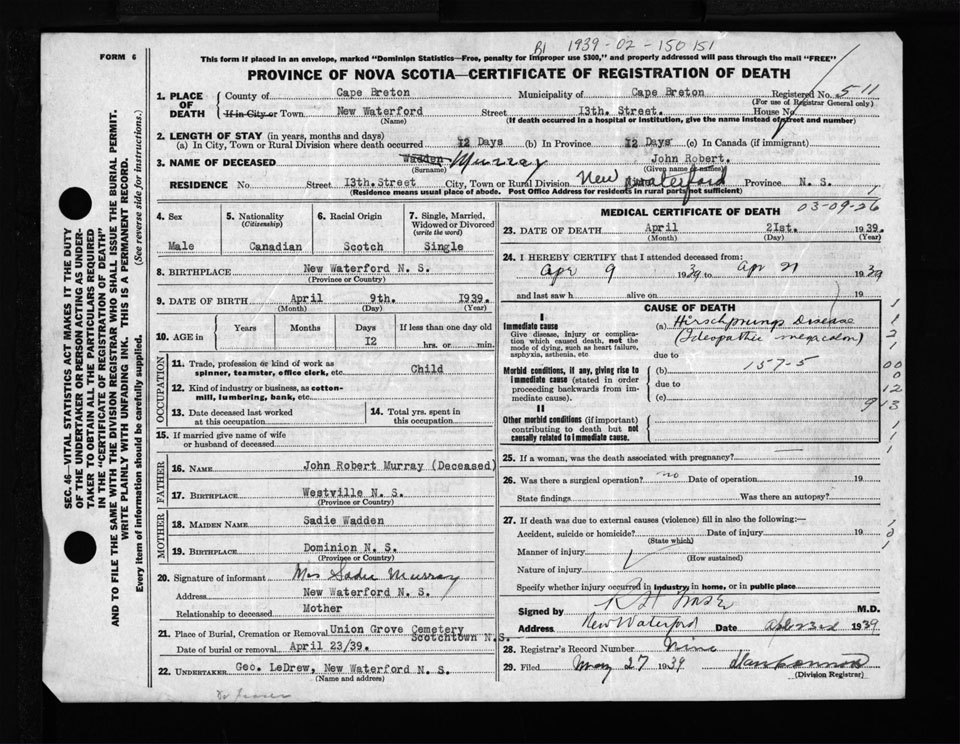 B1 1939-02-150151
FORM 6
This form if placed in an envelope, marked "Dominion Statistics—Free, penalty for improper use $300," and properly addressed will pass through the mail "FREE"
PROVINCE OF NOVA SCOTIA—CERTIFICATE OF REGISTRATION OF DEATH
SEC. 46—VITAL STATISTICS ACT MAKES IT THE DUTY
OF THE UNDERTAKER OR PERSON ACTING AS UNDER-
TAKER TO OBTAIN ALL THE PARTICULARS REQUIRED
IN THE "CERTIFICATE OF REGISTRATION OF DEATH"
AND TO FILE THE SAME WITH THE DIVISION REGISTRAR WHO SHALL ISSUE THE BURIAL PERMIT.
WRITE PLAINLY WITH UNFADING INK. THIS IS A PERMANENT RECORD.
Every item of information should be carefully supplied. (See reverse side for instructions.)
1. PLACE OF DEATH County of Cape Breton Municipality of Cape Breton Registered No. 511
(For use of Registrar General only)
If in City or Town New Waterford Street 13th. Street. House No.
(Name) (If death occurred in a hospital or institution, give the name instead of street and number)
2. LENGTH OF STAY (in years, months and days)
(a) In City, Town or Rural Division where death occurred 12 Days (b) In Province 12 Days (c) In Canada (if immigrant)
3. NAME OF DECEASED Wadden Murray John Robert.
(Surname) (Given name or names)
RESIDENCE No Street 13th. Street City, Town or Rural Division New Waterford Province N. S.
(Residence means usual place of abode. Post Office Address for residents in rural parts not sufficient)
4. Sex 5. Nationality (Citizenship) 6. Racial Origin 7. Single, Married, Widowed or Divorced (write the word)
Male Canadian Scotch Single
8. BIRTHPLACE New Waterford N. S.
(Province or Country)
9. DATE OF BIRTH April 9th. 1939.
(Month) (Day) (Year)
10. AGE in Years Months Days If less than one day old
12 hrs. or min.
OCCUPATION
11. Trade, profession or kind of work as Child
spinner, teamster, office clerk, etc.
12. Kind of industry or business, as cotton-
mill, lumbering, bank, etc.
13. Date deceased last worked at this occupation
14. Total yrs. spent in this occupation
15. If married give name of wife
or husband of deceased
FATHER
16. NAME John Robert Murray (Deceased)
17. BIRTHPLACE Westville N. S.
(Province or Country)
MOTHER
18. MAIDEN NAME Sadie Wadden
19. BIRTHPLACE Dominion N. S.
(Province or Country)
20. Signature of informant Mrs Sadie Murray
Address New Waterford N. S.
Relationship to deceased Mother
21. Place of Burial, Cremation or Removal Union Grove Cemetery
Scotchtown N.S.
Date of burial or removal April 23/39.
22. UNDERTAKER Geo. LeDrew, New Waterford N. S.
(Name and address)
MEDICAL CERTIFICATE OF DEATH 03-09-26
23. DATE OF DEATH April 21st. 1939.
(Month) (Day) (Year)
24. I HEREBY CERTIFY that I attended deceased from:
Apr 9 1939 to Apr 21 1939
and last saw h alive on 19
CAUSE OF DEATH
I
Immediate cause (a) Hirschprungs Disease
Give disease, injury or complica- (Ideopathic megacolon)
tion which caused death, not the
mode of dying, such as heart failure,
asphyxia, asthenia, etc due to
Morbid conditions, if any, giving rise to (b) 157-5
immediate cause (stated in order due to
proceeding backwards from im-
mediate cause). (c)
II
Other morbid conditions (if important)
contributing to death but not
causally related to immediate cause.
25. If a woman, was the death associated with pregnancy?
26. Was there a surgical operation? no Date of operation 19
State findings Was there an autopsy?
27. If death was due to external causes (violence) fill in also the following:—
Accident, suicide or homicide? Date of injury 19
(State which)
Manner of injury
(How sustained)
Nature of injury
Specify whether injury occurred in industry, in home, or in public place
Signed by M.D.
Address New Waterford Date 1939
28. Registrar's Record Number Nine
29. Filed May 27 1939
(Division Registrar)